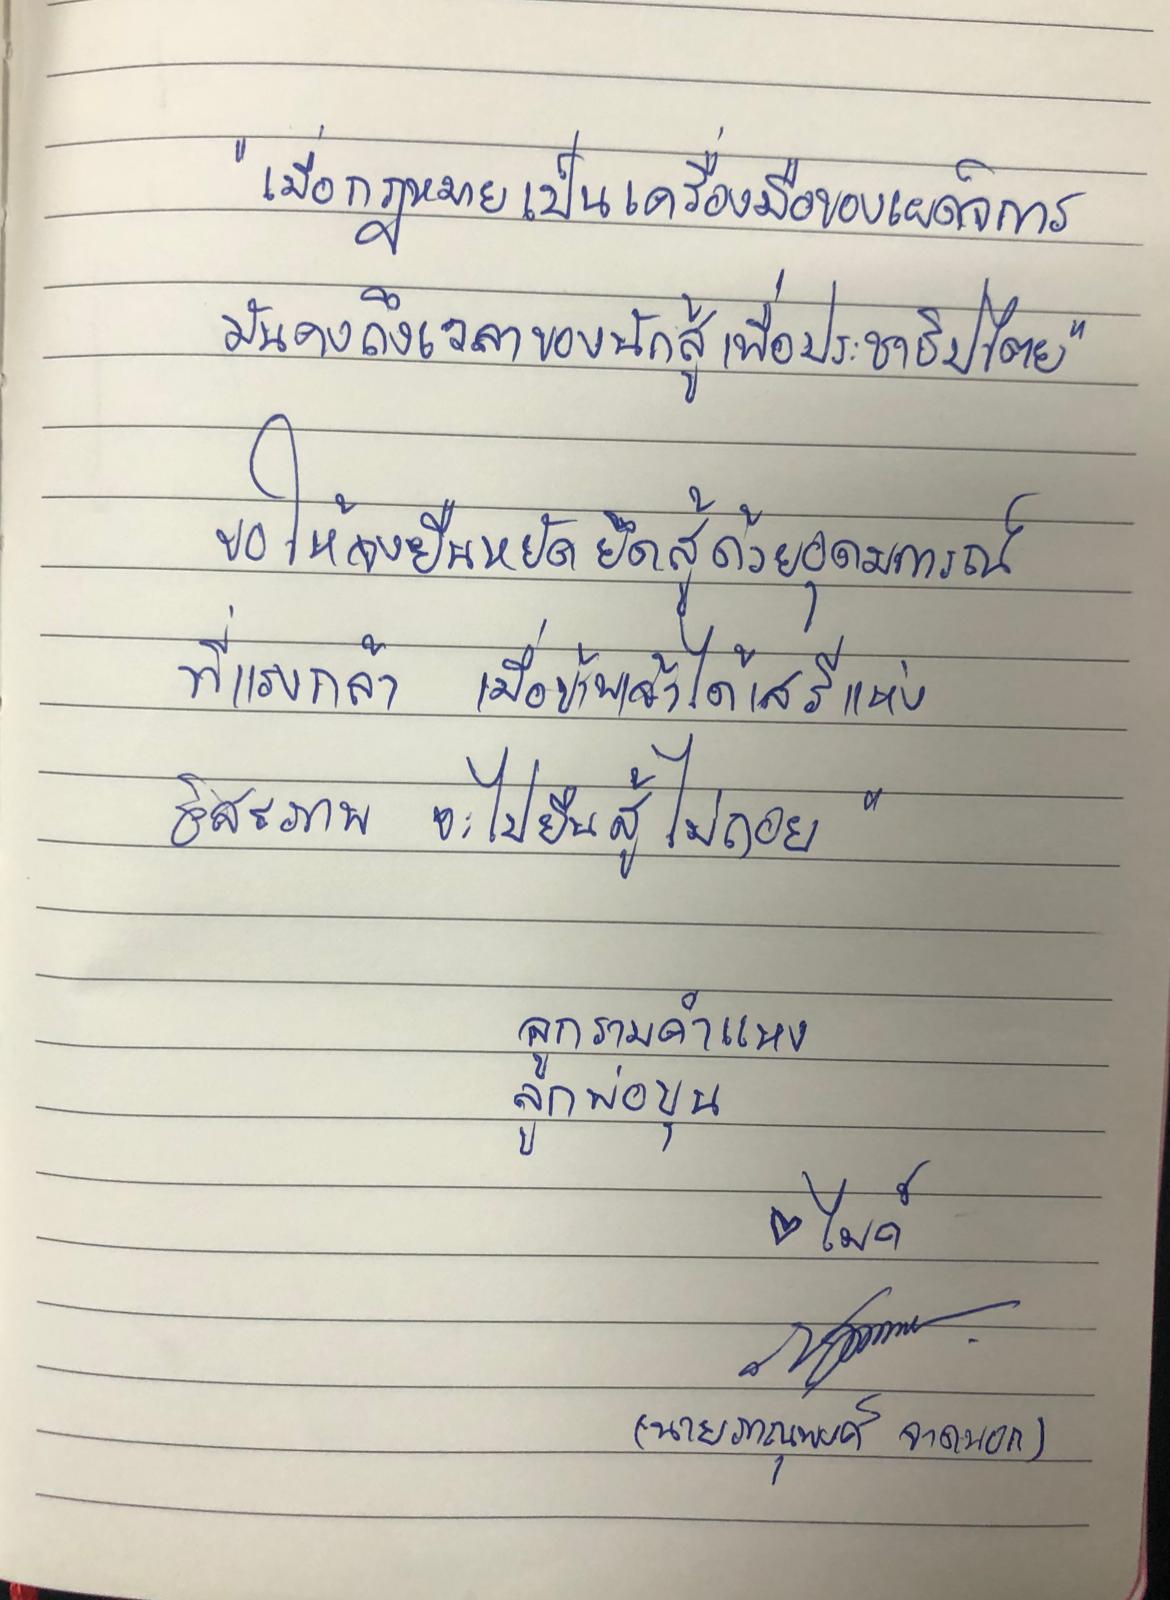 "เมื่อกฎหมายเป็นเครื่องมือของเผด็จการ
มันคงถึงเวลาของนักสู้เพื่อประชาธิปไตย"
ขอให้จงยืนหยัด ยืดสู้ด้วยอุดมการณ์
ที่แรงกล้า เมื่อข้าพเจ้าได้เสรีแห่ง
อิสรภาพ จะไปยืนสู้ ไม่ถอย"
ลูกรามคำแหง
ลูกพ่อขุน
ไมค์
(นายภาณุพงศ์ จาดนอก)